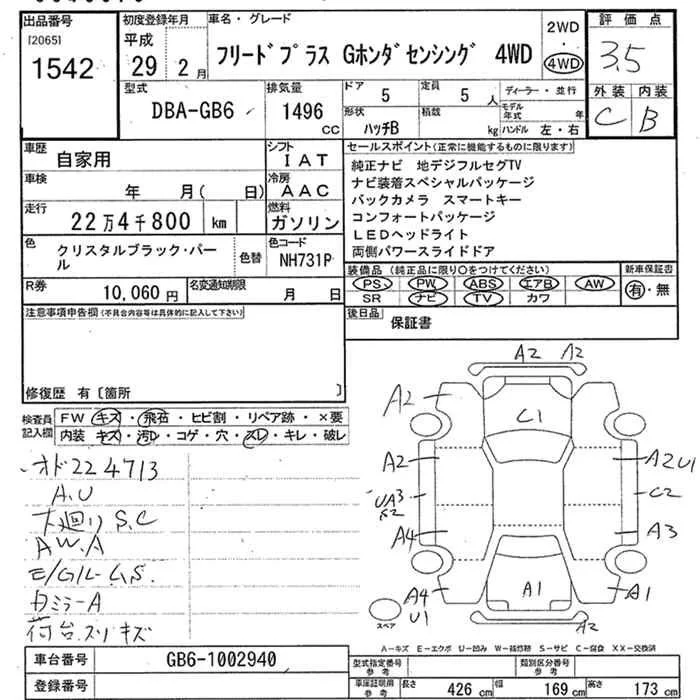 出品番号
[2065]
1542
初度登録年月
平成
29年 2月
車名・グレード
フリードプラス Gホンダセンシング 4WD
2WD
・
4WD
評価点
3.5
外装 内装
C B
型式
DBA-GB6
排気量
1496
CC
ドア
5
定員
5人
形状
ハッチB
積載
kg
ディーラー・並行
モデル年式 年
ハンドル 左・右
車歴
自家用
シフト
IAT
車検
年 月( 日)
冷房
AAC
走行
22万4千800 km
燃料
ガソリン
色
クリスタルブラック・パール
色替
色コード
NH731P
R券
10,060円
名変通知期限
月 日
セールスポイント(正常に機能するものに限ります)
純正ナビ 地デジフルセグTV
ナビ装着スペシャルパッケージ
バックカメラ スマートキー
コンフォートパッケージ
LEDヘッドライト
両側パワースライドドア
装備品(純正品に限り○をつけてください)
PS PW ABS エアB AW
SR ナビ TV カワ
新車保証書
有・無
後日品
保証書
注意事項申告欄(不具合内容等は具体的に記入して下さい)
修復歴 有〔箇所 〕
検査員記入欄
FW キズ・飛石・ヒビ割・リペア跡・×要
内装 キズ・汚レ・コゲ・穴・スレ・キレ・破レ
オド224713
A.U
下廻りS.C
AW.A
Dミラ-A
荷台.スリキズ
A2 A2
A2
C1
A2
A2U1
UA3
S2
C2
A4
A3
A4
U1
A1
A1
A2
スペア
A－キズ E－エクボ U－凹み W－補修跡 S－サビ C－腐食 XX－交換済
車台番号
GB6-1002940
登録番号
型式指定番号
参考
類別区分番号
参考
車庫証明用
参考
長さ
426 cm
幅
169 cm
高さ
173 cm